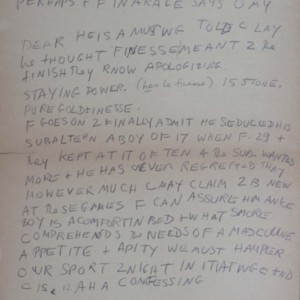 PERHAPS. F F IN A RAGE SAYS O MY
DEAR HE IS A MUST WE TOLD C LAY
he THOUGHT FINESSE MEANT 2 the
FINISH they KNOW APOLOGIZING.
STAYING POWER. IS STONE.
PURE GOLD FINESSE.
F GOES ON 2 FINALLY ADMIT HE SEDUCED HIS
SUBALTERN A BOY OF 17 WHEN F. 29 +
they KEPT AT IT OFTEN + the SUB. WANTED
MORE + HE HAS NEVER REGRETTED THAT
HOWEVER MUCH C MAY CLAIM 2 B NEW
AT these GAMES F CAN ASSURE HIM ANCE
BOY IS A COMFORT IN BED + WHATS MORE
COMPREHENDS the NEEDS OF A MASCULINE
APPETITE + A PITY WE MUST HAMPER
OUR SPORT 2NIGHT IN THAT
C IS AHA CONFESSING